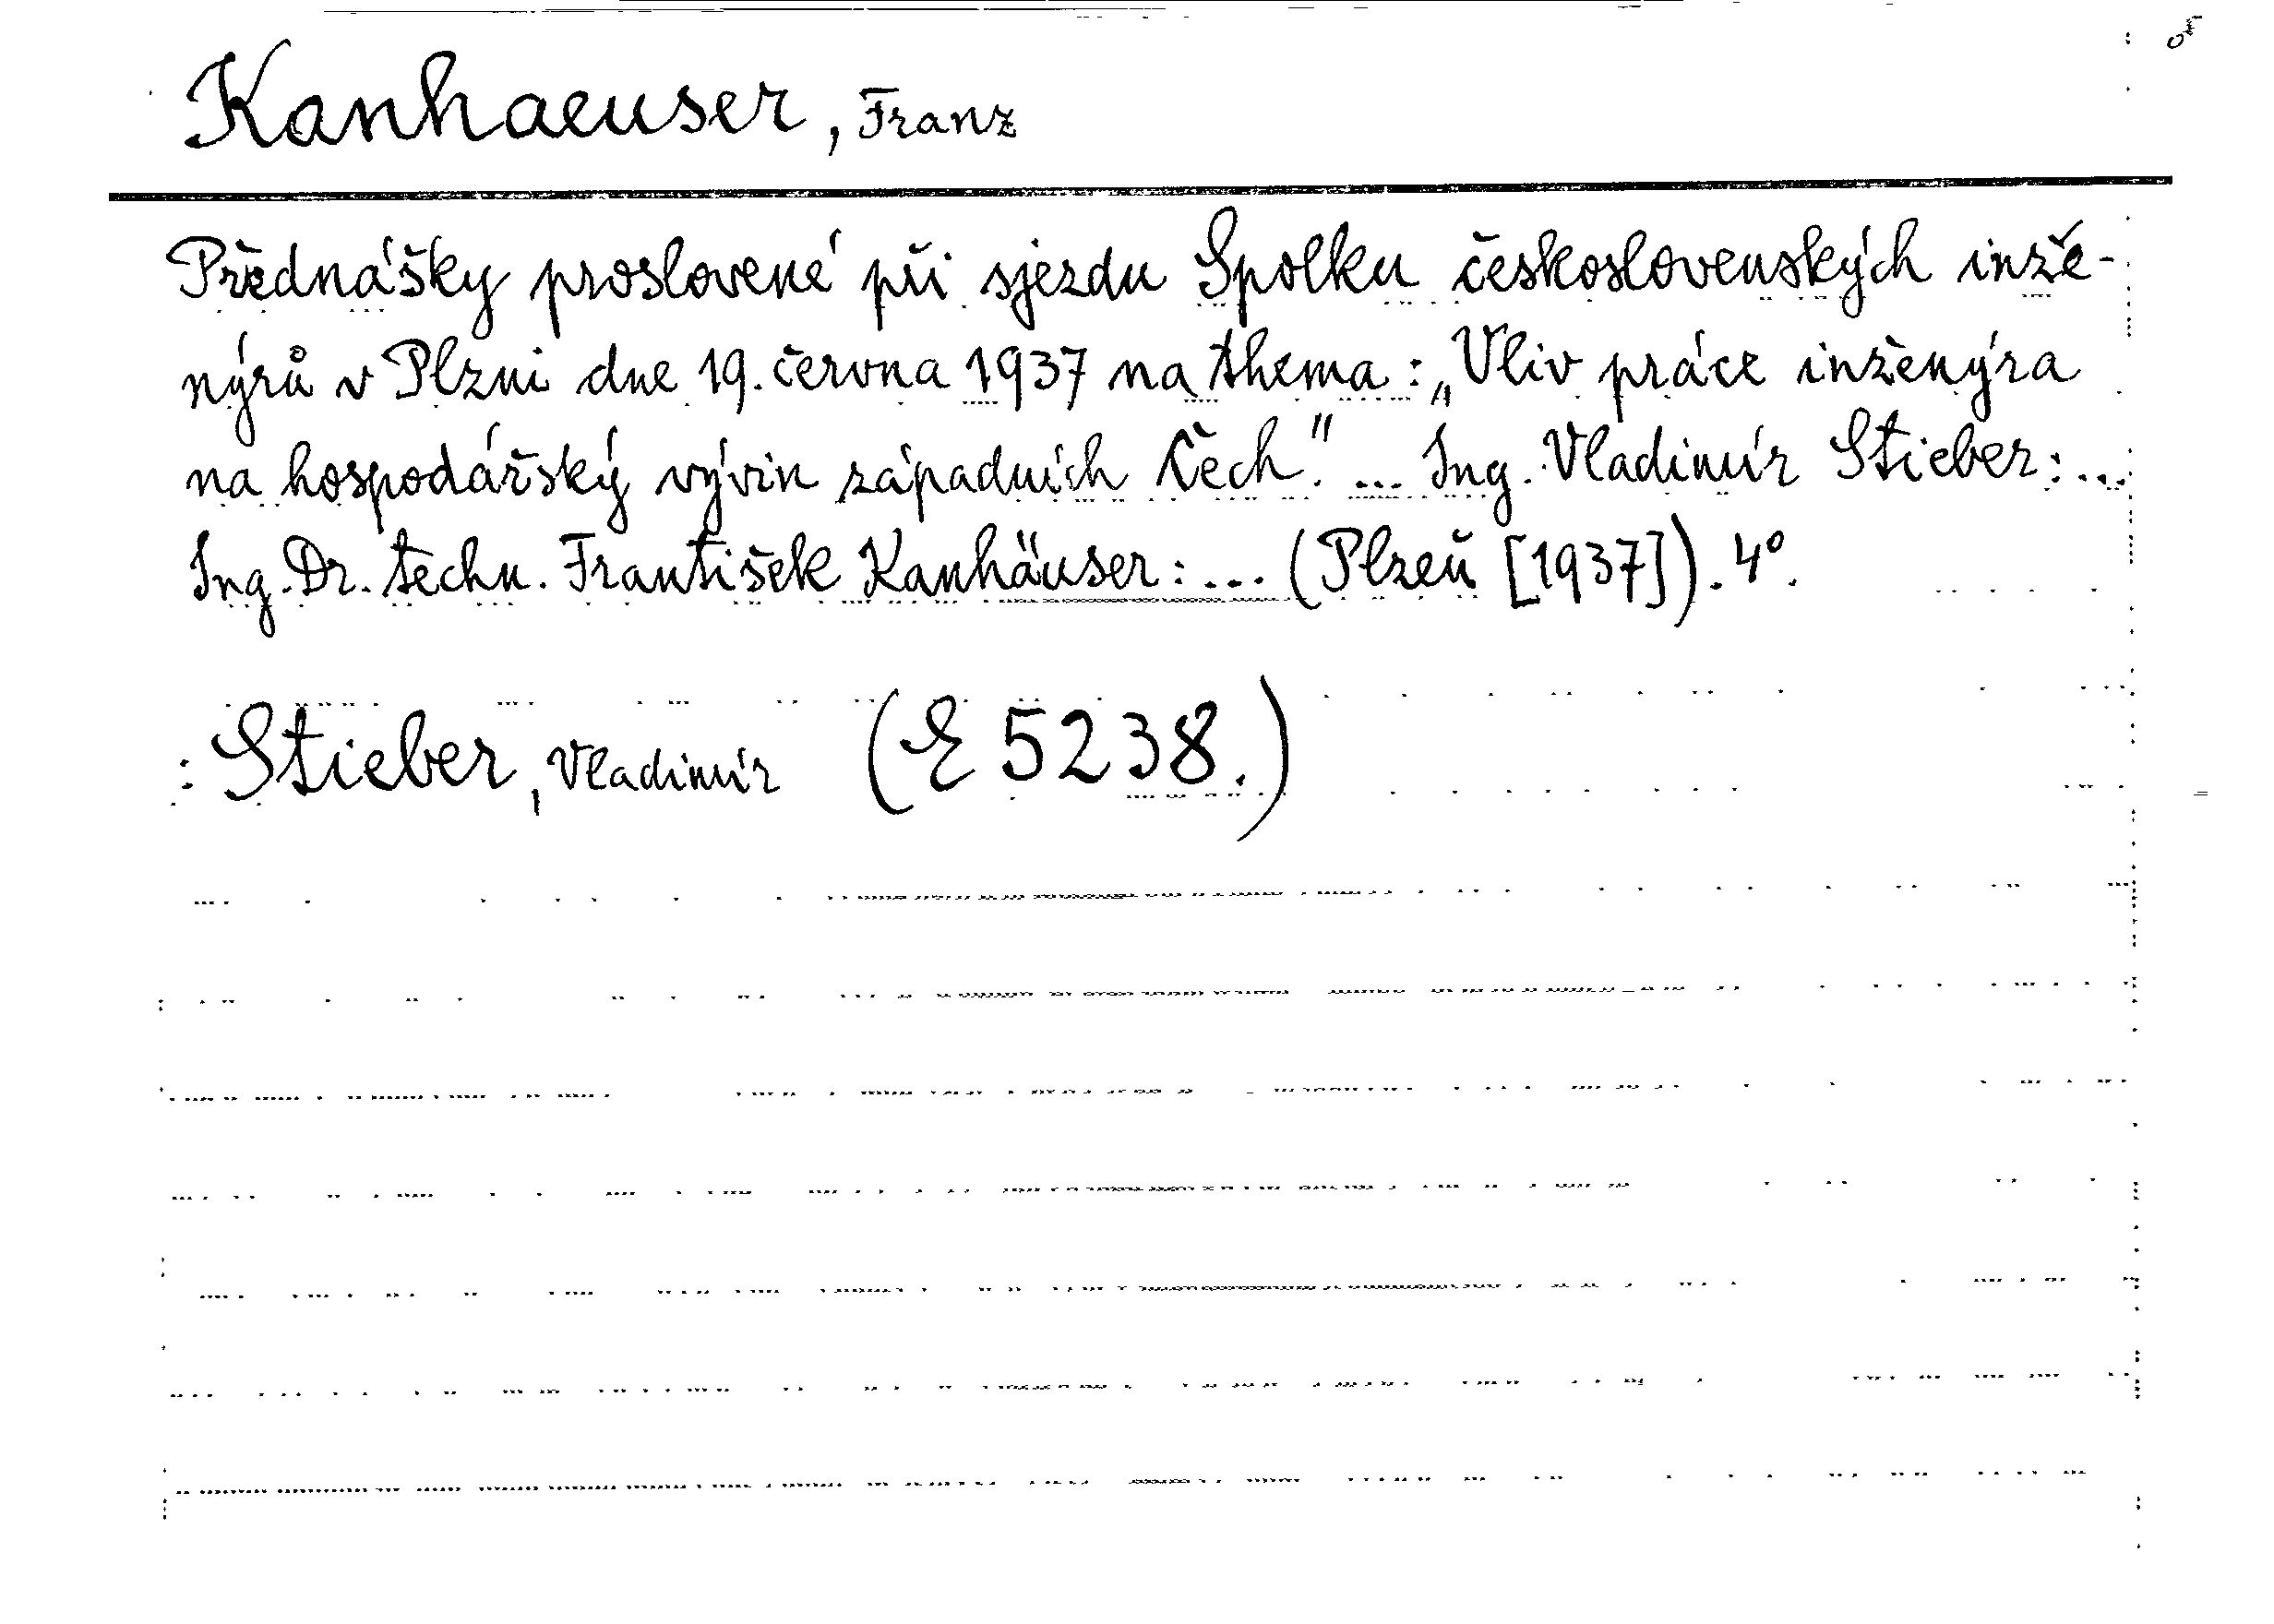 Kanhaeuser, Franz
Přednášky proslovené při sjezdu Spolku československých inže-
nýrů v Plzni dne 19. června 1937 na thema: „Vliv práce inženýra
na hospodářský vývin západních Čech." ... Ing. Vladimír Stieber: ...
Ing. Dr. techn. František Kanhäuser: ... (Plzeň [1937]). 4°.
: Stieber, Vladimír (E 5238.)